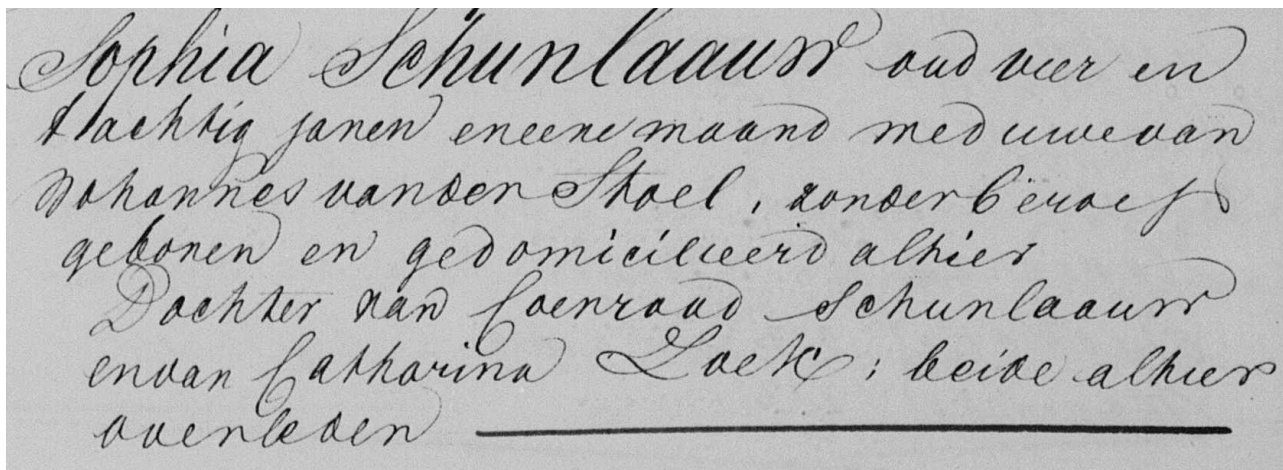 Sophia Schunlaauw oud vier en
tachtig jaren en eene maand weduwe van
Johannes van der Stoel, zonder beroep
geboren en gedomicilieerd alhier
Dochter van Coenraad Schunlaauw
en van Catharina Loek; beide alhier
overleden